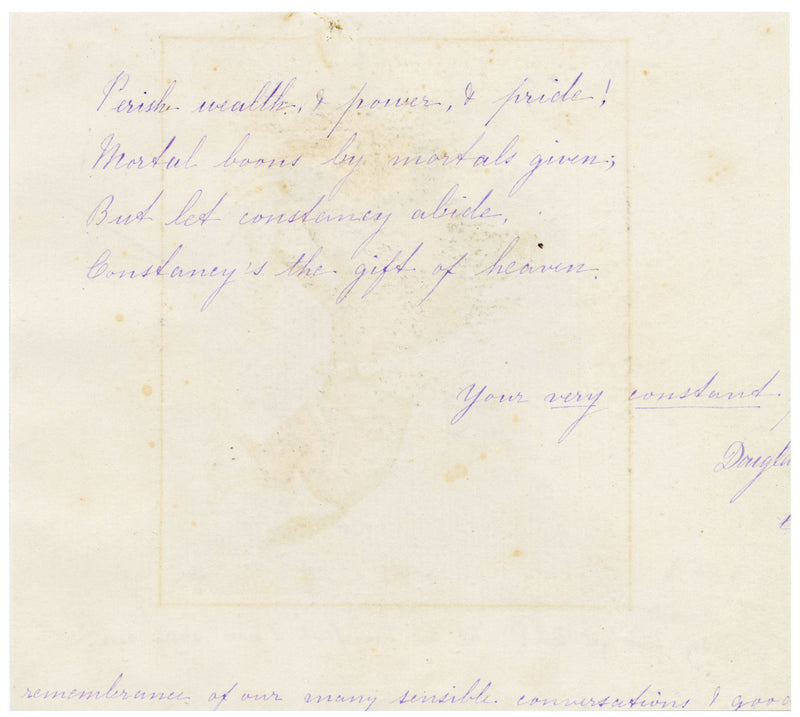 Perish wealth, & power, & pride!
Mortal boons by mortals given;
But let constancy abide,
Constancy's the gift of heaven.
Your very constant
Dougla
remembrance of our many sensible conversations & good